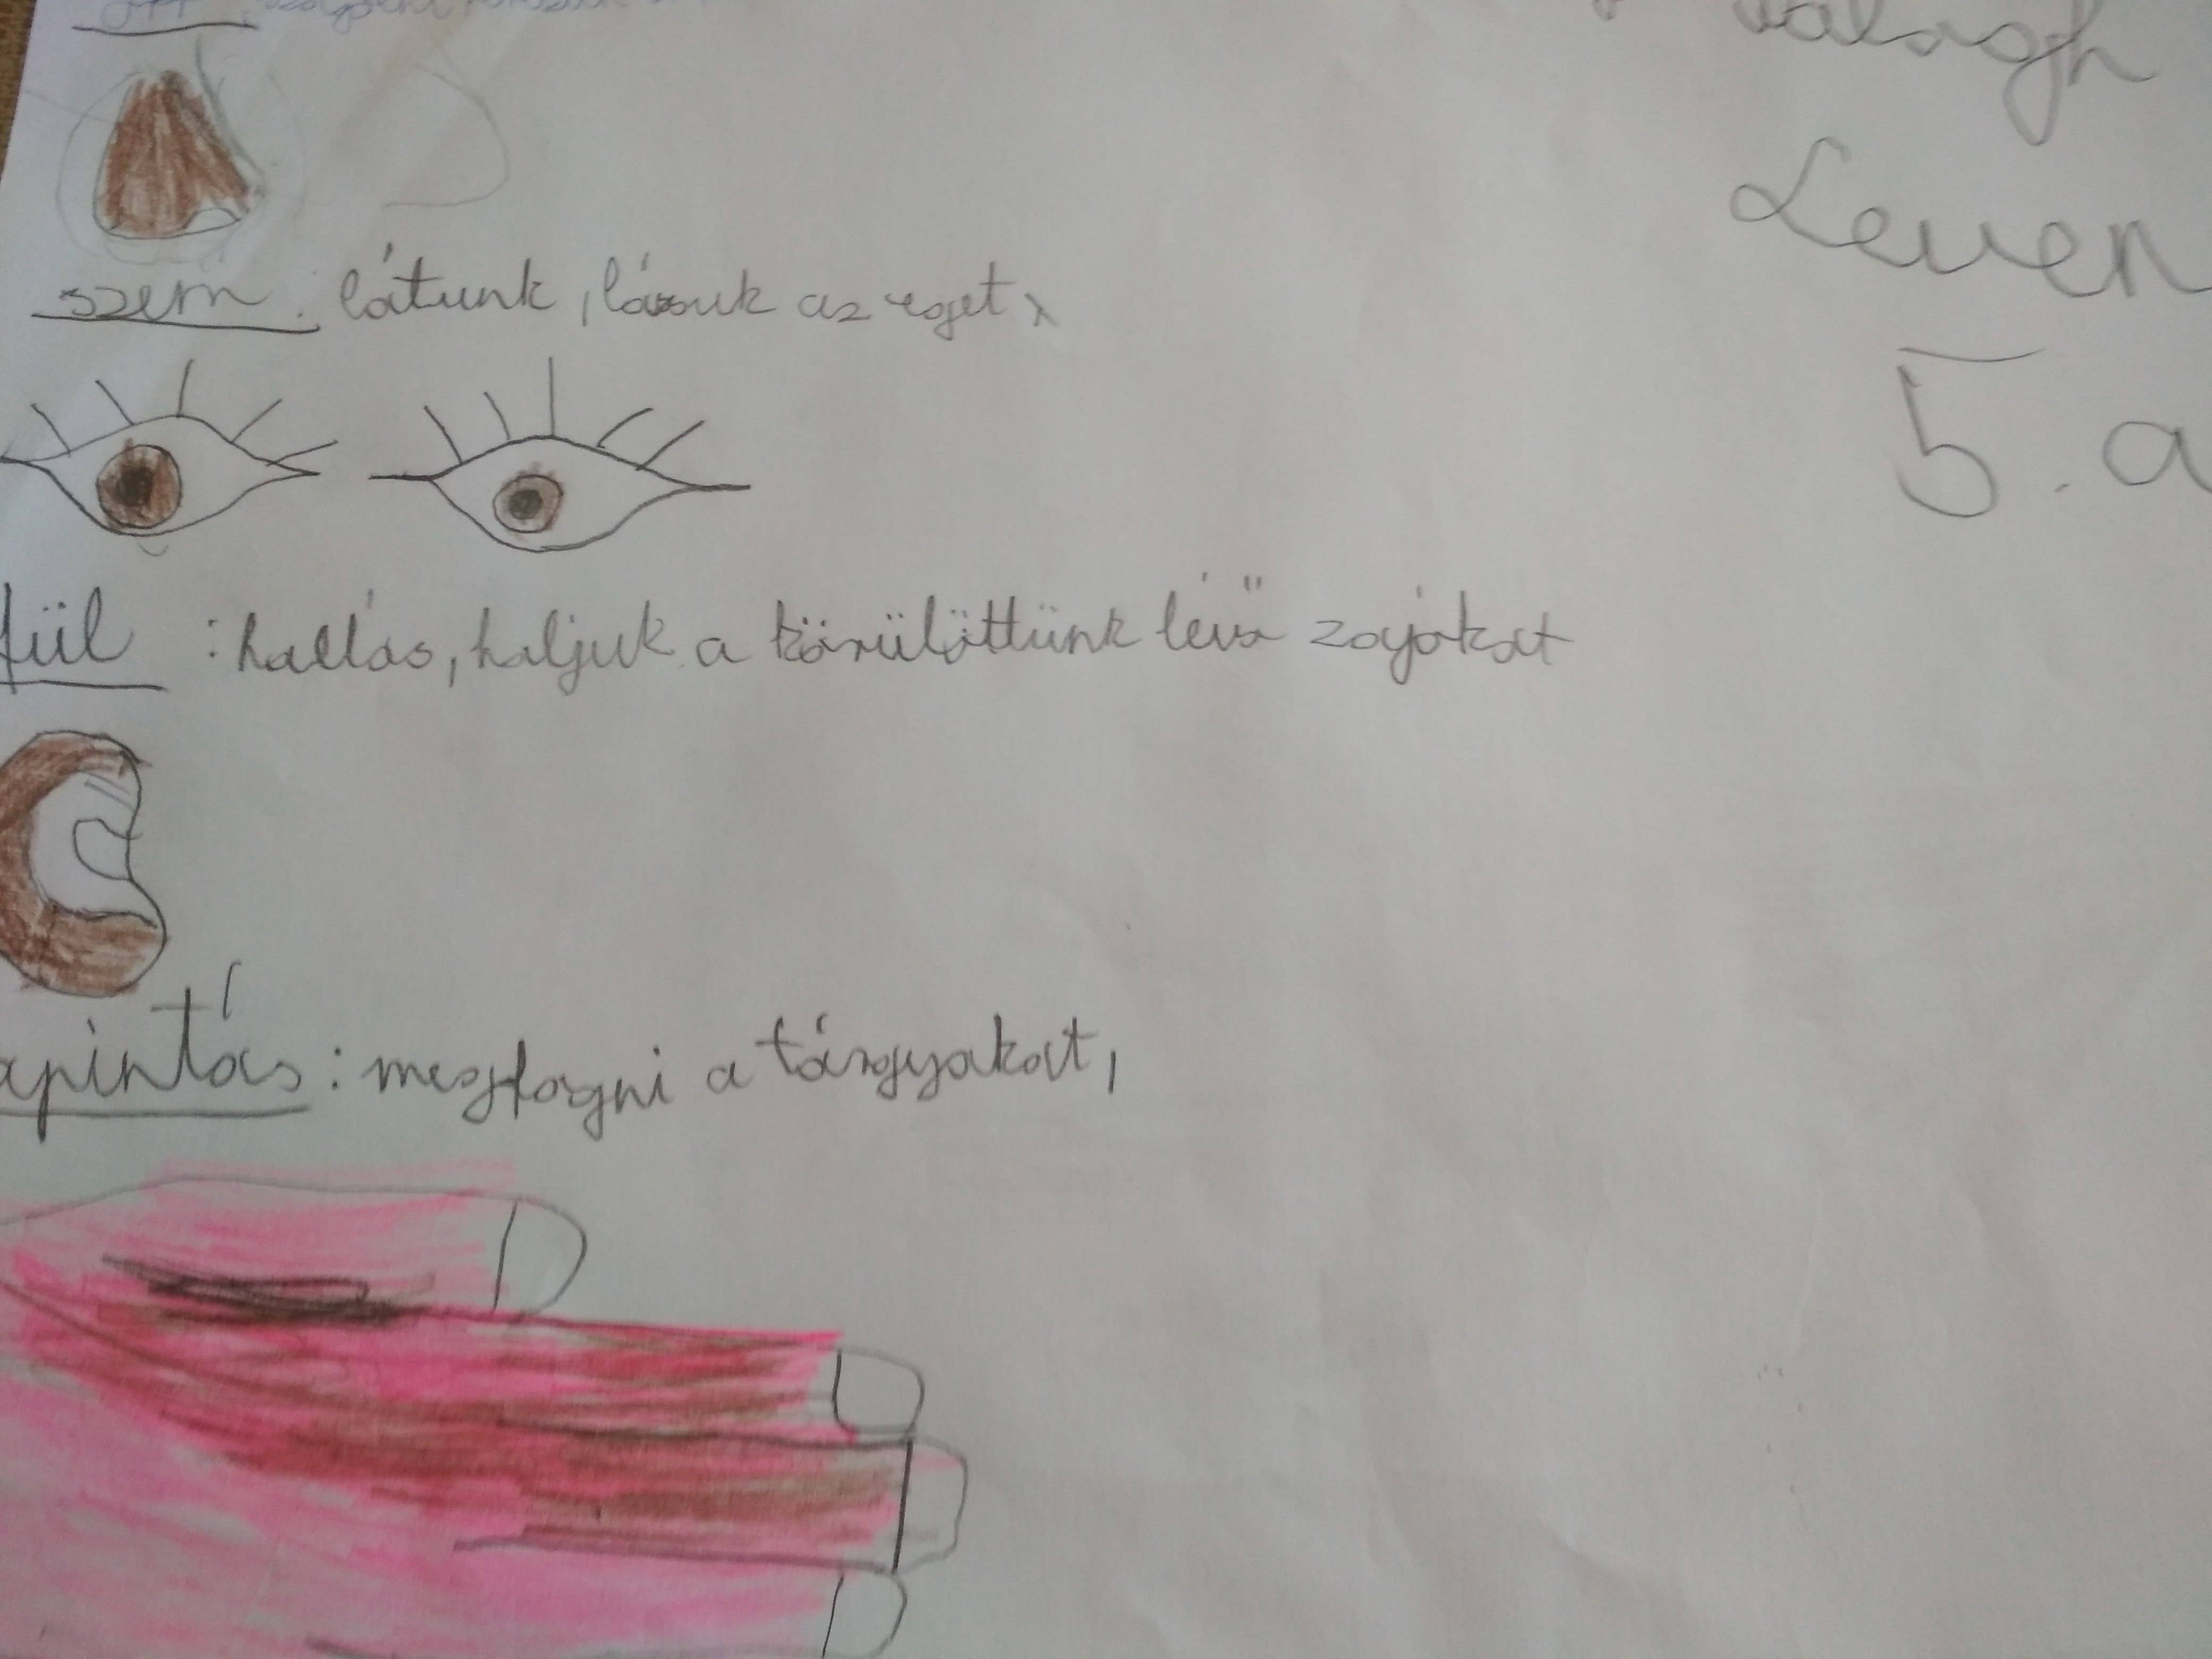 orr
Balogh
Leven
szem: látunk, lássuk az eget,
5. a
fül : hallás, haljuk a körülöttünk lévő zajokat
apintás: megfogni a tárgyakat,